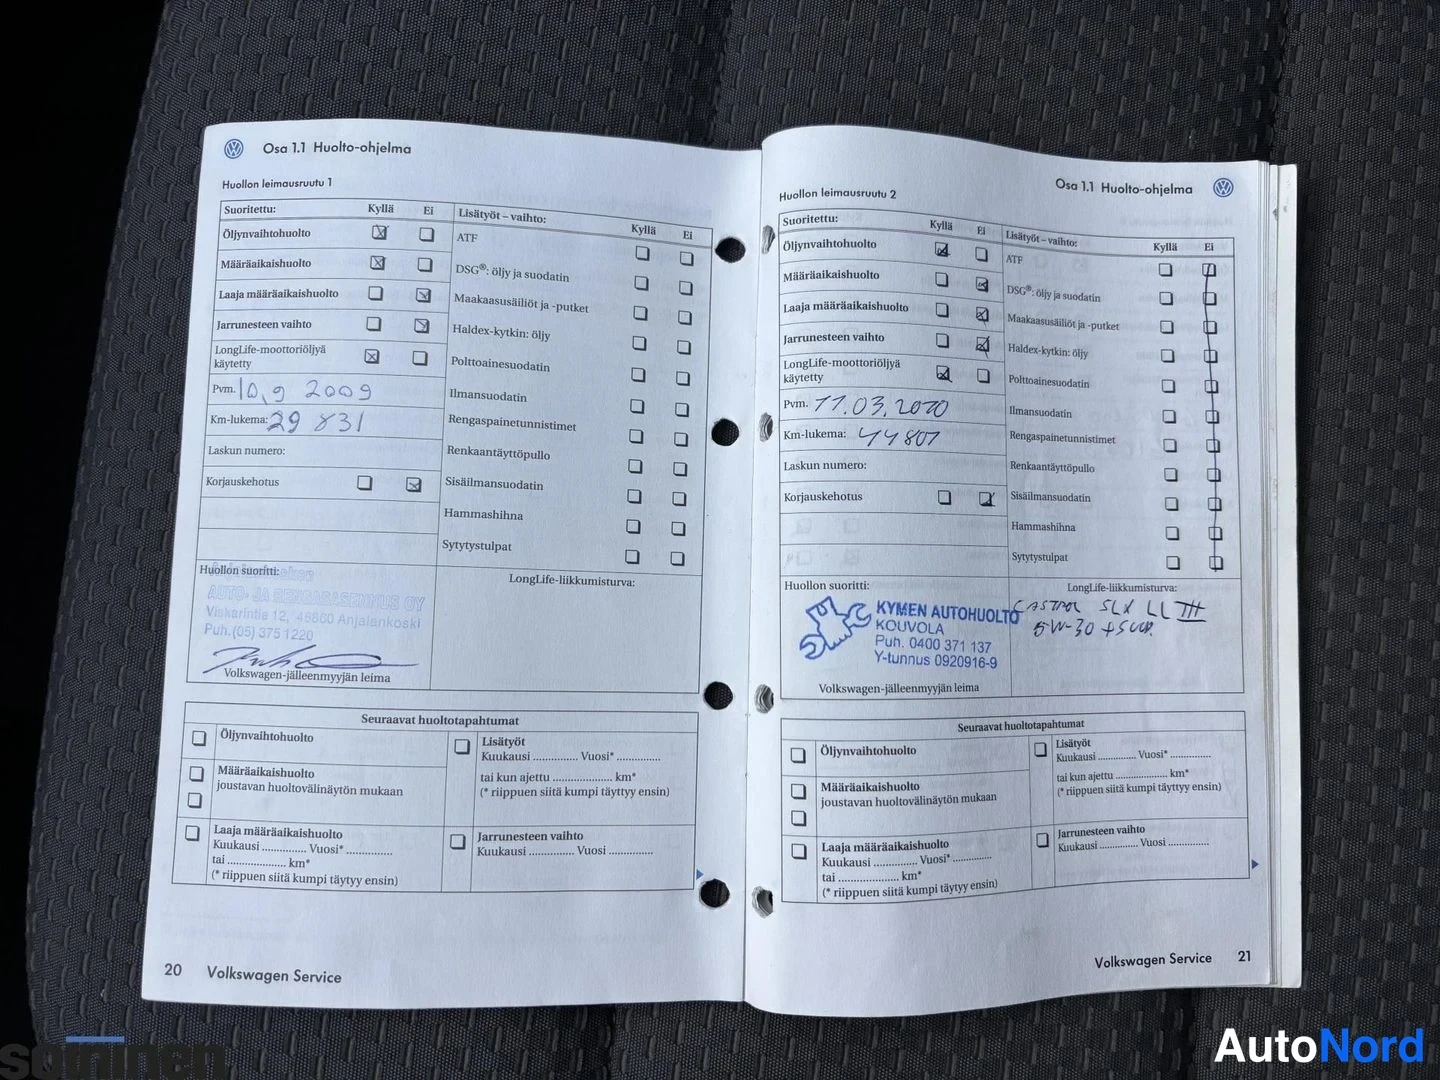 Osa 1.1 Huolto-ohjelma
Huollon leimausruutu 1
Suoritettu: Kyllä Ei
Öljynvaihtohuolto
Määräaikaishuolto
Laaja määräaikaishuolto
Jarrunesteen vaihto
LongLife-moottoriöljyä
käytetty
Pvm. 10.9 2009
Km-lukema: 29 831
Laskun numero:
Korjauskehotus
Lisätyöt – vaihto: Kyllä Ei
ATF
DSG®: öljy ja suodatin
Maakaasusäiliöt ja -putket
Haldex-kytkin: öljy
Polttoainesuodatin
Ilmansuodatin
Rengaspainetunnistimet
Renkaantäyttöpullo
Sisäilmansuodatin
Hammashihna
Sytytystulpat
Huollon suoritti:
AUTO- JA RENGASASENNUS OY
Viskarintie 12, 46860 Anjalankoski
Puh. (05) 375 1220
Volkswagen-jälleenmyyjän leima
LongLife-liikkumisturva:
Seuraavat huoltotapahtumat
Öljynvaihtohuolto
Määräaikaishuolto
joustavan huoltovälinäytön mukaan
Laaja määräaikaishuolto
Kuukausi .............. Vuosi* ..............
tai .................... km*
(* riippuen siitä kumpi täytyy ensin)
Lisätyöt
Kuukausi .............. Vuosi* ..............
tai kun ajettu .................... km*
(* riippuen siitä kumpi täyttyy ensin)
Jarrunesteen vaihto
Kuukausi .............. Vuosi ..............
20 Volkswagen Service
Osa 1.1 Huolto-ohjelma
Huollon leimausruutu 2
Suoritettu: Kyllä Ei
Öljynvaihtohuolto
Määräaikaishuolto
Laaja määräaikaishuolto
Jarrunesteen vaihto
LongLife-moottoriöljyä
käytetty
Pvm. 11.03.2010
Km-lukema: 44801
Laskun numero:
Korjauskehotus
Lisätyöt – vaihto: Kyllä Ei
ATF
DSG®: öljy ja suodatin
Maakaasusäiliöt ja -putket
Haldex-kytkin: öljy
Polttoainesuodatin
Ilmansuodatin
Rengaspainetunnistimet
Renkaantäyttöpullo
Sisäilmansuodatin
Hammashihna
Sytytystulpat
Huollon suoritti:
KYMEN AUTOHUOLTO
KOUVOLA
Puh. 0400 371 137
Y-tunnus 0920916-9
Volkswagen-jälleenmyyjän leima
LongLife-liikkumisturva:
CASTROL SLX LL III
5W-30
Seuraavat huoltotapahtumat
Öljynvaihtohuolto
Määräaikaishuolto
joustavan huoltovälinäytön mukaan
Laaja määräaikaishuolto
Kuukausi .............. Vuosi* ..............
tai .................... km*
(* riippuen siitä kumpi täytyy ensin)
Lisätyöt
Kuukausi .............. Vuosi* ..............
tai kun ajettu .................... km*
(* riippuen siitä kumpi täyttyy ensin)
Jarrunesteen vaihto
Kuukausi .............. Vuosi ..............
Volkswagen Service 21
soininen
AutoNord